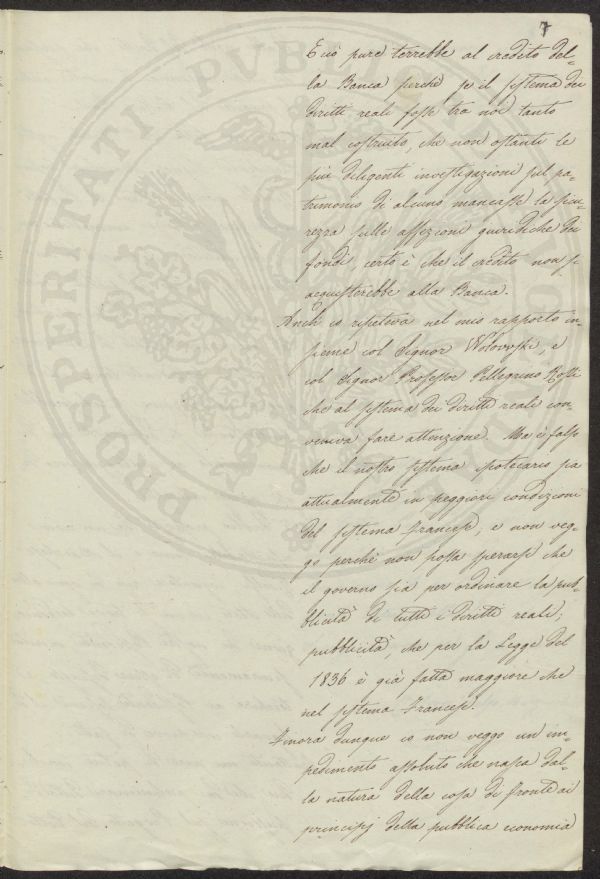 7
E ciò pure terrebbe al credito del-
la Banca perchè se il sistema dei
diritti reali fosse tra noi tanto
mal costruito, che non ostante le
più diligenti investigazioni sul pa-
trimonio di alcuno mancasse la sicu-
rezza sulle affezioni giuridiche dei
fondi, certo è che il credito non si
acquisterebbe alla Banca.
Anch'io ripeteva nel mio rapporto in-
sieme col Signor Wolowski, e
col Signor Professor Pellegrino Rossi
che al sistema dei diritti reali con-
veniva fare attenzione. Ma è falso
che il nostro sistema ipotecario sia
attualmente in peggiori condizioni
del sistema Francese, e non veg-
go perchè non possa sperarsi che
il governo sia per ordinare la pub-
blicità di tutti i diritti reali;
pubblicità, che per la Legge del
1836 è già fatta maggiore che
nel sistema Francese.
Finora dunque io non veggo un im-
pedimento assoluto che nasca dal-
la natura della cosa di fronte ai
principj della pubblica economia
PROSPERITATI PUBLICAE